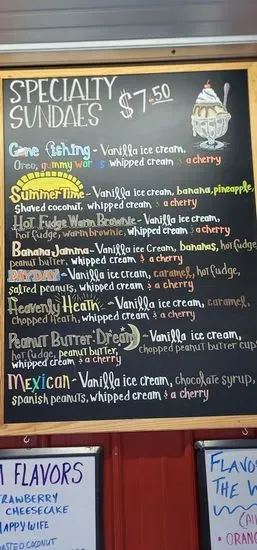 SPECIALTY
SUNDAES
$7.50
Gone Fishing - Vanilla ice cream,
Oreo, gummy worms, whipped cream & a cherry
SummerTime - Vanilla ice cream, banana, pineapple,
shaved coconut, whipped cream & a cherry
Hot Fudge Warm Brownie - Vanilla ice cream,
hot fudge, warm brownie, whipped cream & a cherry
Banana Jamma - Vanilla Ice Cream, bananas, hot fudge,
peanut butter, whipped cream & a cherry
PAYDAY - Vanilla ice cream, caramel, hot fudge,
salted peanuts, whipped cream & a cherry
Heavenly Heath - Vanilla ice cream, caramel,
chopped Heath, whipped cream & a cherry
Peanut Butter Dream - Vanilla ice cream,
hot fudge, peanut butter, chopped peanut butter cups
whipped cream & a cherry
Mexican - Vanilla ice cream, chocolate syrup,
spanish peanuts, whipped cream & a cherry
FLAVORS
TRAWBERRY
CHEESECAKE
HAPPY WIFE
OASTED COCONUT
FLAVO
THE W
ORANG